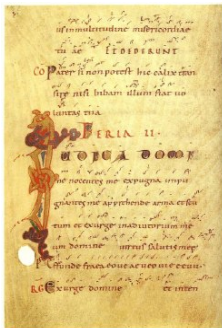 in multitudine misericordiae
tuae ET DEDERUNT
CO Pater si non potest hic calix tran
sire nisi bibam illum fiat vo
luntas tua
FERIA II
IUDICA DOMI
ne nocentes me expugna inpu
gnantes me apprehende arma et scu
tum et exurge in adiutorium me
um domine virtus salutis meę
Effunde frameā
RG Exurge domine et inten